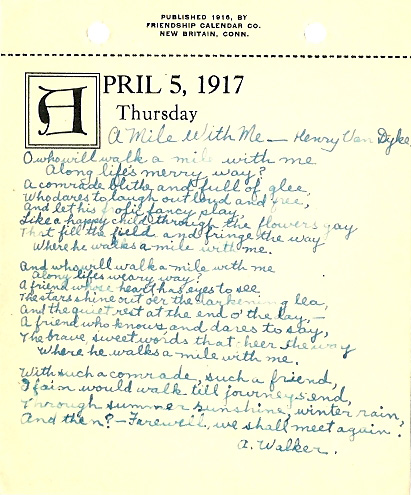 PUBLISHED 1916, BY
FRIENDSHIP CALENDAR CO.
NEW BRITAIN, CONN.
APRIL 5, 1917
Thursday
A Mile With Me — Henry Van Dyke
O who will walk a mile with me
Along life's merry way?
A comrade blithe and full of glee,
Who dares to laugh out loud and free,
And let his frolic fancy play,
Like a happy child, through the flowers gay
That fill the field and fringe the way
Where he walks a mile with me.
And who will walk a mile with me
Along life's weary way?
A friend whose heart has eyes to see
The stars shine out o'er the darkening lea,
And the quiet rest at the end o' the day,—
A friend who knows, and dares to say,
The brave, sweet words that cheer the way
Where he walks a mile with me.
With such a comrade, such a friend,
I fain would walk till journey's end,
Through summer sunshine, winter rain,
And then?—Farewell, we shall meet again.
A. Walker.